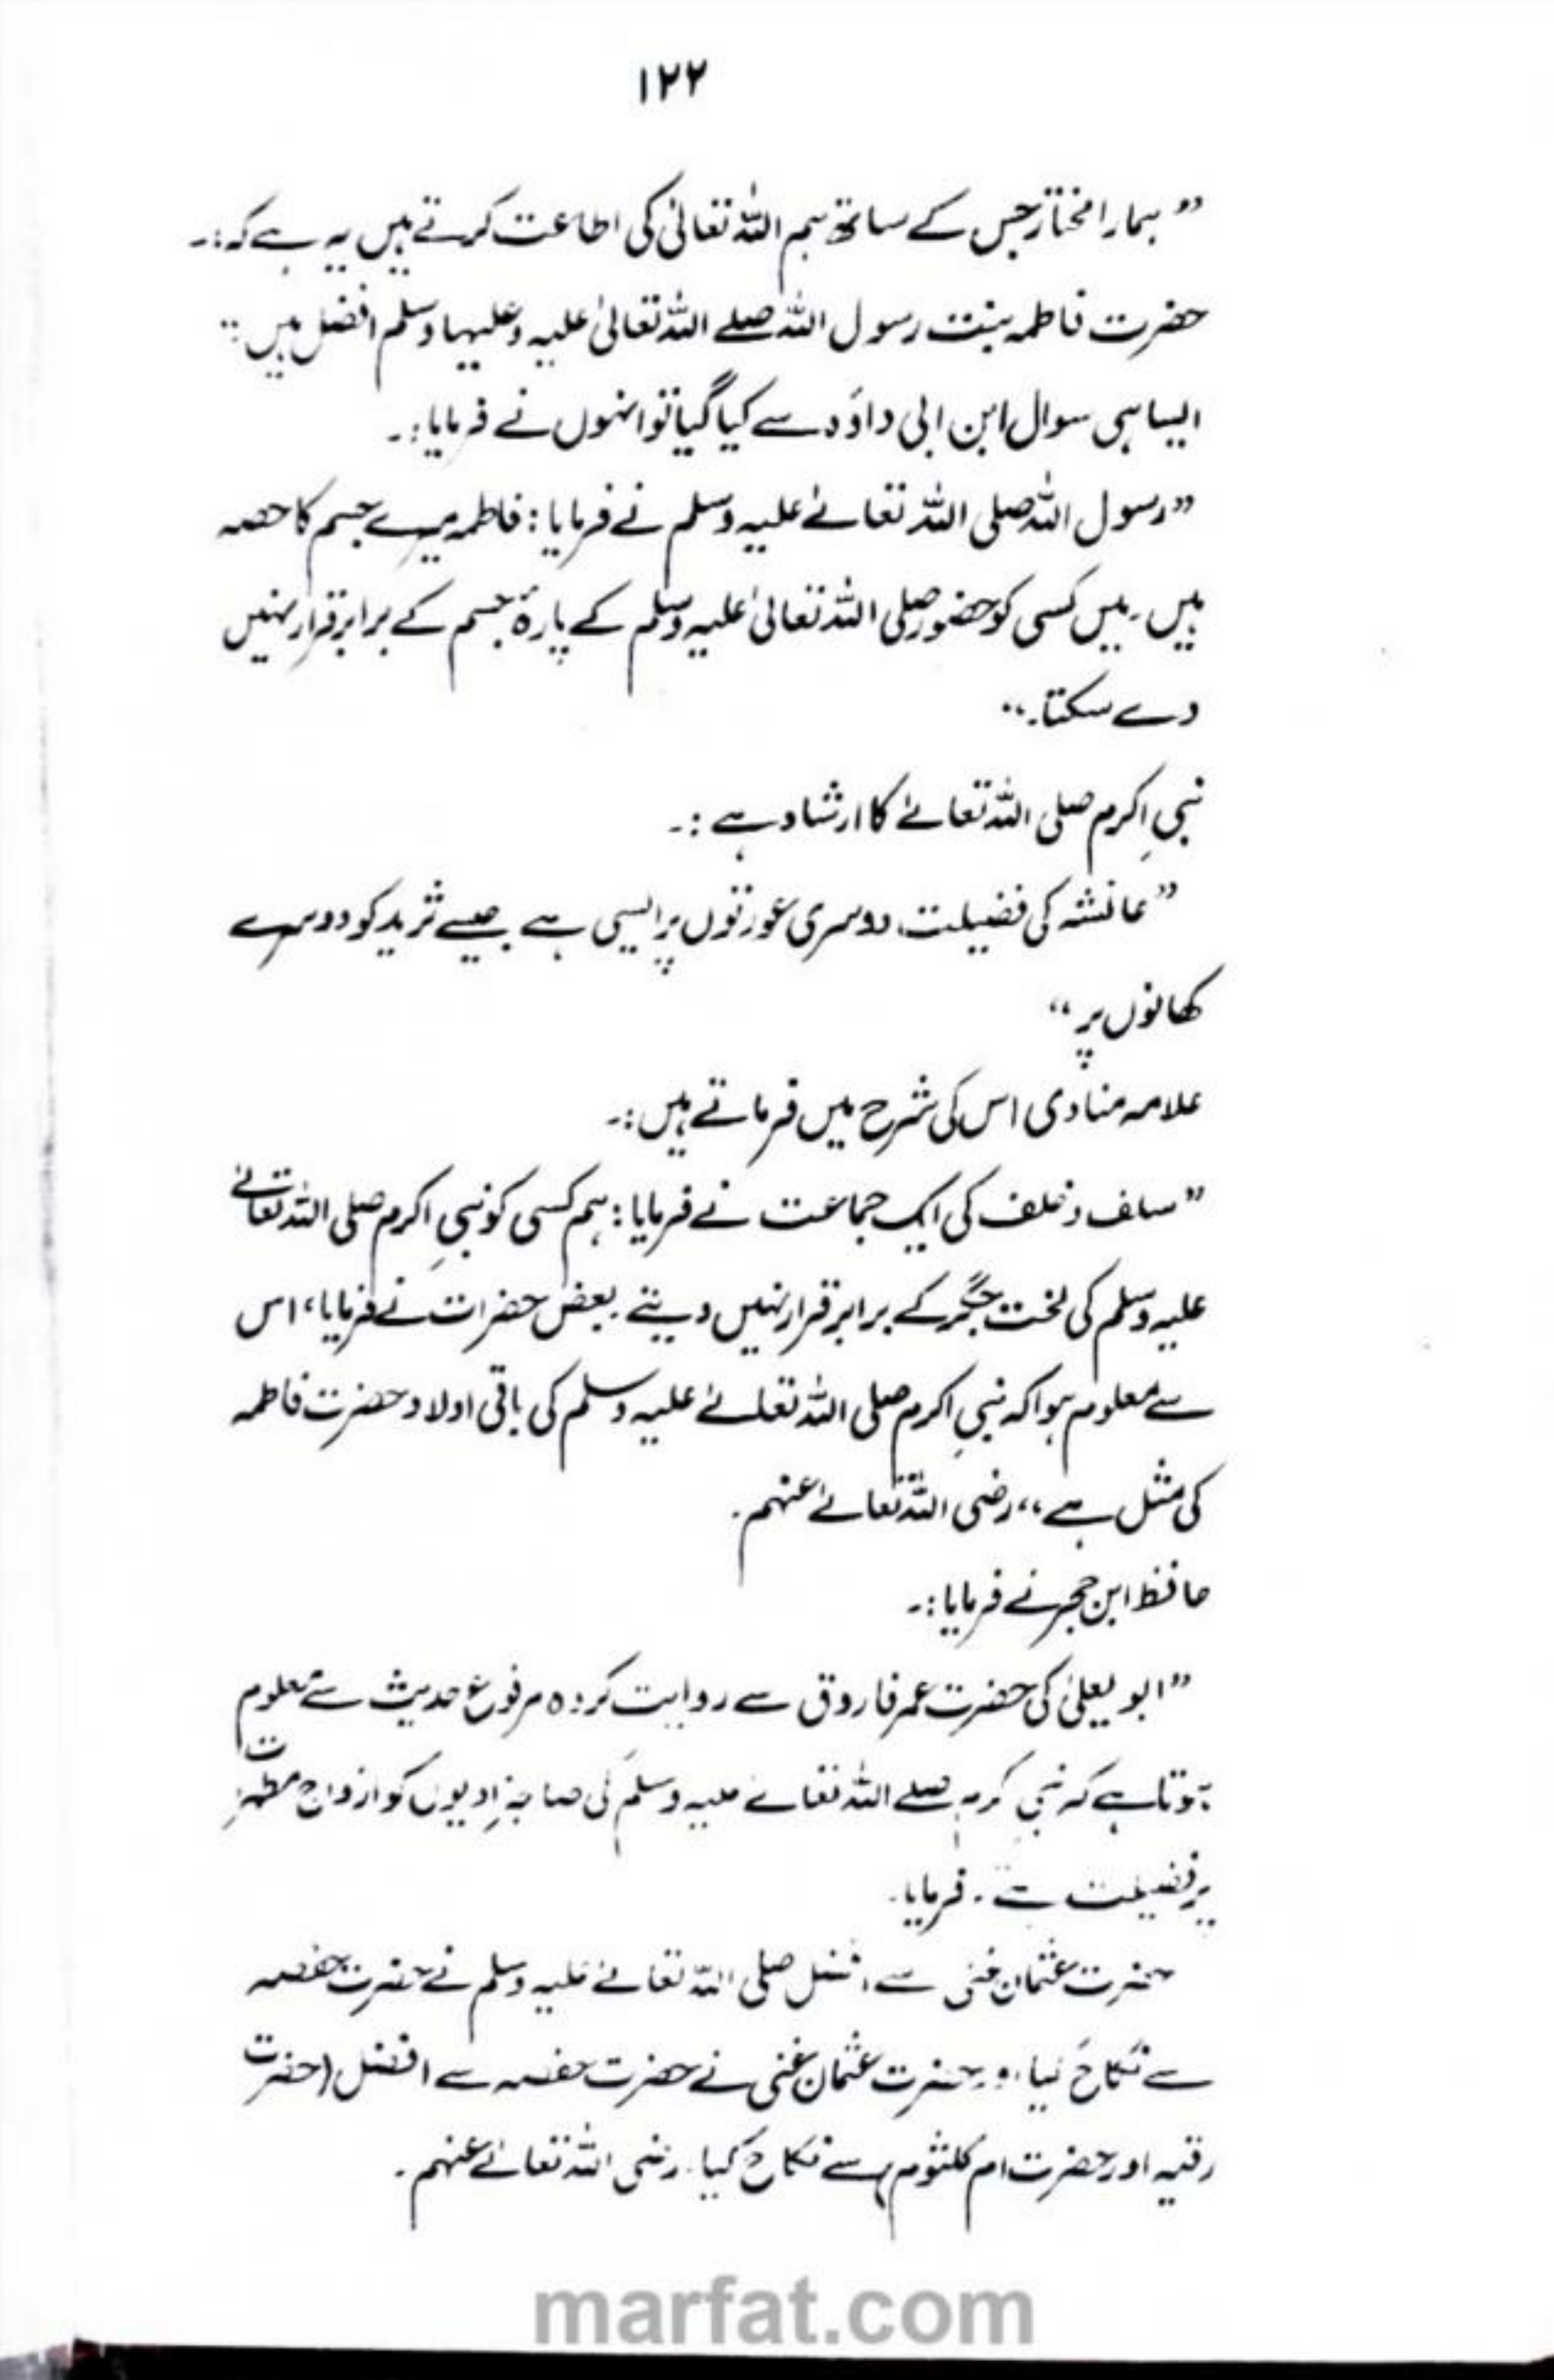 ۱۲۲
” ہمارا مختار جس کے ساتھ ہم اللہ تعالیٰ کی اطاعت کرتے ہیں یہ ہے کہ:۔
حضرت فاطمہ بنت رسول اللہ صلے اللہ تعالیٰ علیہ و علیہا وسلم افضل ہیں“
ایسا ہی سوال ابن ابی داؤد سے کیا گیا تو انہوں نے فرمایا:۔
”رسول اللہ صلی اللہ تعالےٰ علیہ وسلم نے فرمایا: فاطمہ میرے جسم کا حصہ
ہیں۔ میں کسی کو حضور صلی اللہ تعالیٰ علیہ وسلم کے پارۂ جسم کے برابر قرار نہیں
دے سکتا۔“
نبیِ اکرم صلی اللہ تعالےٰ کا ارشاد ہے :۔
”عائشہ کی فضیلت، دوسری عورتوں پر ایسی ہے جیسے ثرید کو دوسرے
کھانوں پر“
علامہ مناوی اس کی شرح میں فرماتے ہیں:۔
”سلف و خلف کی ایک جماعت نے فرمایا: ہم کسی کو نبیِ اکرم صلی اللہ تعالےٰ
علیہ وسلم کی لخت جگر کے برابر قرار نہیں دیتے۔ بعض حضرات نے فرمایا، اس
سے معلوم ہوا کہ نبیِ اکرم صلی اللہ تعالےٰ علیہ وسلم کی باقی اولاد حضرت فاطمہ
کی مثل ہے“ رضی اللہ تعالےٰ عنہم۔
حافظ ابن حجر نے فرمایا:۔
”ابو یعلیٰ کی حضرت عمر فاروق سے روایت کردہ مرفوع حدیث سے معلوم
ہوتا ہے کہ نبیِ کرم صلے اللہ تعالےٰ علیہ وسلم کی صاحبزادیوں کو ازواج مطہرات
پر فضیلت ہے۔ فرمایا۔
حضرت عثمان غنی سے افضل صلی اللہ تعالےٰ علیہ وسلم نے حضرت حفصہ
سے نکاح کیا اور حضرت عثمان غنی نے حضرت حفصہ سے افضل (حضرت
رقیہ اور حضرت ام کلثوم) سے نکاح کیا۔ رضی اللہ تعالےٰ عنہم۔
marfat.com